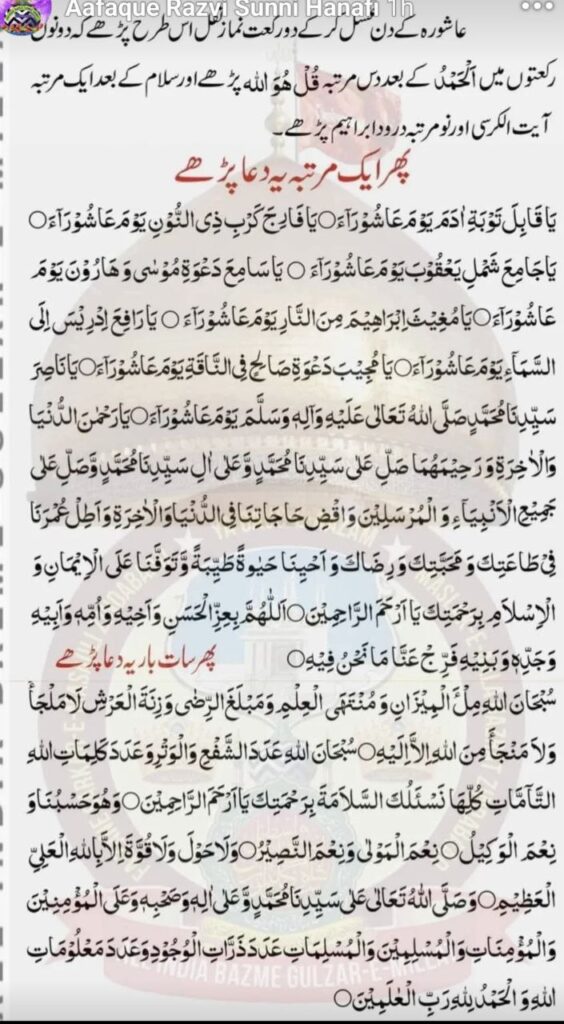 Aafaque Razvi Sunni Hanafi 1h
عاشورہ کے دن غسل کر کے دو رکعت نماز نفل اس طرح پڑھے کہ دونوں
رکعتوں میں اَلْحَمْدُ کے بعد دس مرتبہ قُلْ هُوَ الله پڑھے اور سلام کے بعد ایک مرتبہ
آیت الکرسی اور نو مرتبہ درود ابراہیم پڑھے۔
پھر ایک مرتبہ یہ دعا پڑھے
یَا قَابِلَ تَوْبَةِ اٰدَمَ یَوْمَ عَاشُوْرَآءَ○یَا فَارِجَ کَرْبِ ذِی النُّوْنِ یَوْمَ عَاشُوْرَآءَ○
یَا جَامِعَ شَمْلِ یَعْقُوْبَ یَوْمَ عَاشُوْرَآءَ○یَا سَامِعَ دَعْوَةِ مُوْسٰی وَ هَارُوْنَ یَوْمَ
عَاشُوْرَآءَ○یَا مُغِیْثَ اِبْرَاهِیْمَ مِنَ النَّارِ یَوْمَ عَاشُوْرَآءَ○یَا رَافِعَ اِدْرِیْسَ اِلَی
السَّمَآءِ یَوْمَ عَاشُوْرَآءَ○یَا مُجِیْبَ دَعْوَةِ صَالِحٍ فِی النَّاقَةِ یَوْمَ عَاشُوْرَآءَ○یَا نَاصِرَ
سَیِّدِنَا مُحَمَّدٍ صَلَّی اللهُ تَعَالٰی عَلَیْهِ وَاٰلِهٖ وَسَلَّمَ یَوْمَ عَاشُوْرَآءَ○یَا رَحْمٰنَ الدُّنْیَا
وَالْاٰخِرَةِ وَ رَحِیْمَهُمَا صَلِّ عَلٰی سَیِّدِنَا مُحَمَّدٍ وَّعَلٰی اٰلِ سَیِّدِنَا مُحَمَّدٍ وَّصَلِّ عَلٰی
جَمِیْعِ الْاَنْبِیَآءِ وَ الْمُرْسَلِیْنَ وَ اقْضِ حَاجَاتِنَا فِی الدُّنْیَا وَالْاٰخِرَةِ وَ اَطِلْ عُمْرَنَا
فِیْ طَاعَتِكَ وَ مَحَبَّتِكَ وَ رِضَاكَ وَ اَحْیِنَا حَیٰوةً طَیِّبَةً وَّ تَوَفَّنَا عَلَی الْاِیْمَانِ وَ
الْاِسْلَامِ بِرَحْمَتِكَ یَا اَرْحَمَ الرَّاحِمِیْنَ○اَللّٰهُمَّ بِعِزِّ الْحَسَنِ وَ اَخِیْهِ وَ اُمِّهٖ وَ اَبِیْهِ
وَ جَدِّهٖ وَ بَنِیْهِ فَرِّجْ عَنَّا مَا نَحْنُ فِیْهِ○ پھر سات بار یہ دعا پڑھے
سُبْحَانَ اللهِ مِلْءَ الْمِیْزَانِ وَ مُنْتَهَی الْعِلْمِ وَ مَبْلَغَ الرِّضٰی وَ زِنَةَ الْعَرْشِ لَا مَلْجَأَ
وَلَا مَنْجَأَ مِنَ اللهِ اِلَّا اِلَیْهِ○سُبْحَانَ اللهِ عَدَدَ الشَّفْعِ وَ الْوَتْرِ وَ عَدَدَ کَلِمَاتِ اللهِ
التَّآمَّاتِ کُلِّهَا نَسْئَلُكَ السَّلَامَةَ بِرَحْمَتِكَ یَا اَرْحَمَ الرَّاحِمِیْنَ○وَهُوَ حَسْبُنَا وَ
نِعْمَ الْوَکِیْلُ○نِعْمَ الْمَوْلٰی وَ نِعْمَ النَّصِیْرُ○وَلَا حَوْلَ وَلَا قُوَّةَ اِلَّا بِاللهِ الْعَلِیِّ
الْعَظِیْمِ○وَصَلَّی اللهُ تَعَالٰی عَلٰی سَیِّدِنَا مُحَمَّدٍ وَّعَلٰی اٰلِهٖ وَصَحْبِهٖ وَعَلَی الْمُؤْمِنِیْنَ
وَالْمُؤْمِنَاتِ وَ الْمُسْلِمِیْنَ وَالْمُسْلِمَاتِ عَدَدَ ذَرَّاتِ الْوُجُوْدِ وَعَدَدَ مَعْلُوْمَاتِ
اللهِ وَ الْحَمْدُ لِلّٰهِ رَبِّ الْعٰلَمِیْنَ○
INDIA BAZME GULZAR-E-MILLAT